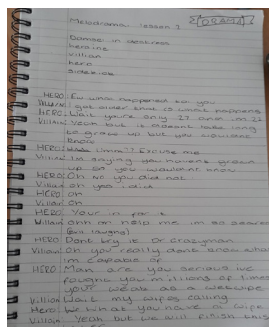 DRAMA
Melodrama lesson 1
Damse in destress
heroine
villian
hero
sidekick
HERO: Ew what happened to you
Villain: I got older that is what happens
HERO: Wait you're only 27 and im 22
Villain: Yeah but it doesnt take long
to grow up but you wouldnt
know
HERO: Umm?? Excuse me
Villain: Im saying you havent grown
up so you wouldnt know
HERO: Oh no you did not
Villain: oh yes i did
HERO: Oh
Villain: Oh
HERO: Your in for it
Villain: ahh oh help me im so scared
(evil laughing)
HERO: Dont try it Dr crazyman
Villain: Oh you really dont know what
im capable of
HERO: Man are you serious we
fought you millions of times
your weak as a wetwipe
Villain: Wait my wifes calling
Hero: We what you have wife
Villain: Yeah but we will finish this